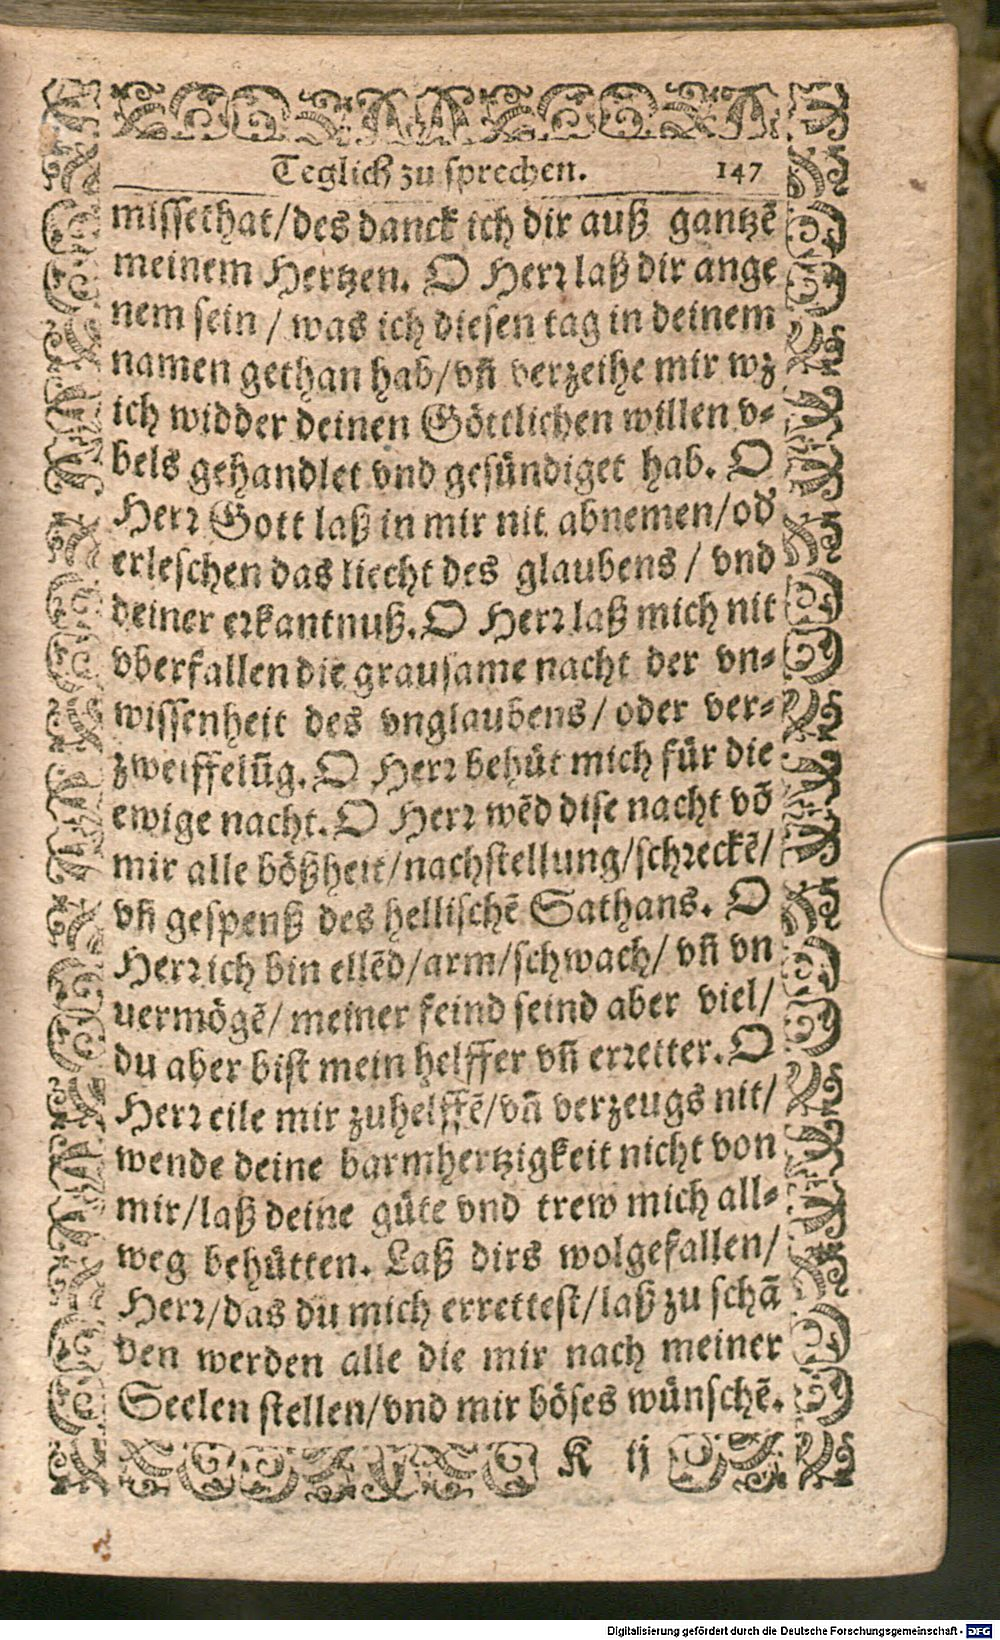 Teglich zu sprechen. 147
missethat/des danck ich dir auß gantzē
meinem Hertzen. O Herr laß dir ange
nem sein / was ich diesen tag in deinem
namen gethan hab/vñ verzeihe mir wz
ich widder deinen Göttlichen willen v-
bels gehandlet vnd gesündiget hab. O
Herr Gott laß in mir nit abnemen/od̕
erleschen das liecht des glaubens / vnd
deiner erkantnuß. O Herr laß mich nit
vberfallen die grausame nacht der vn-
wissenheit des vnglaubens/oder ver-
zweiffelūg. O Herr behüt mich für die
ewige nacht. O Herr wēd dise nacht vō
mir alle bößheit/nachstellung/schreckē/
vñ gespenß des hellischē Sathans. O
Herr ich bin ellēd/arm/schwach/ vñ vn
uermögē/ meiner feind seind aber viel/
du aber bist mein helffer vñ erretter. O
Herr eile mir zuhelffē/vñ verzeugs nit/
wende deine barmhertzigkeit nicht von
mir/laß deine güte vnd trew mich all-
weg behütten. Laß dirs wolgefallen/
Herr/das du mich errettest/laß zu schā
den werden alle die mir nach meiner
Seelen stellen/vnd mir böses wünschē.
K ij
Digitalisierung gefördert durch die Deutsche Forschungsgemeinschaft - DFG